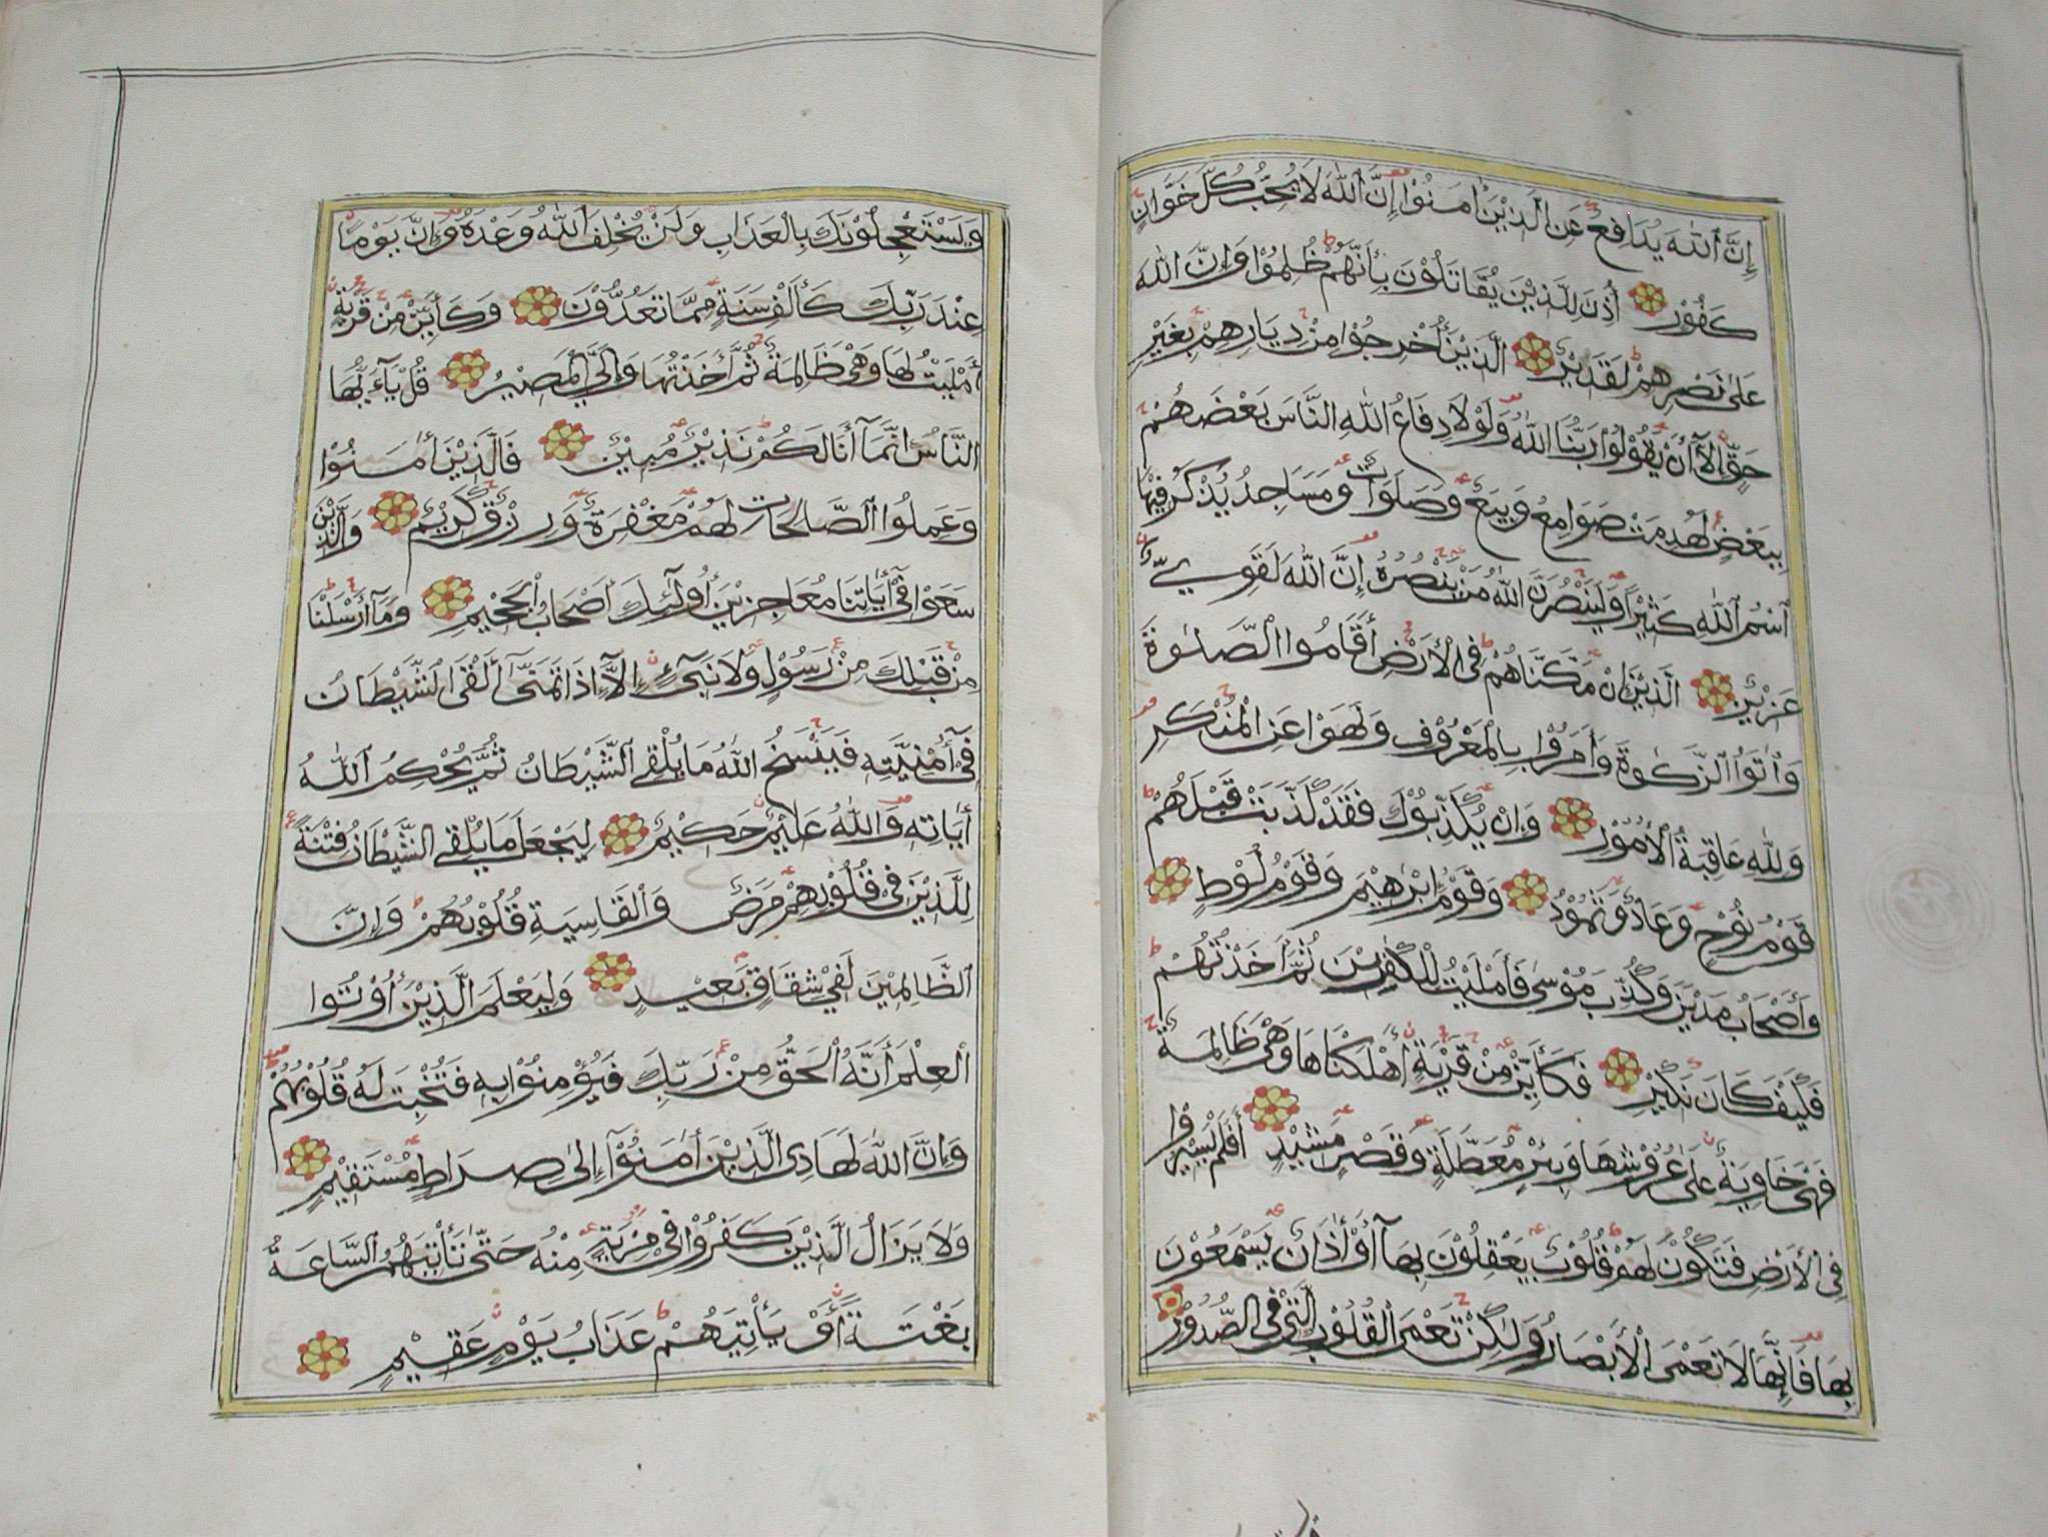 إِنَّ ٱللّٰهَ يُدَافِعُ عَنِ الَّذِيْنَ اٰمَنُوْا إِنَّ ٱللّٰهَ لَا يُحِبُّ كُلَّ خَوَّانٍ
كَفُوْرٍ أُذِنَ لِلَّذِيْنَ يُقَاتَلُوْنَ بِأَنَّهُمْ ظُلِمُوْا وَإِنَّ اللّٰهَ
عَلٰى نَصْرِهِمْ لَقَدِيْرٌ الَّذِيْنَ أُخْرِجُوْا مِنْ دِيَارِهِمْ بِغَيْرِ
حَقٍّ إِلَّآ أَنْ يَقُوْلُوْا رَبُّنَا اللّٰهُ وَلَوْلَا دِفَاعُ اللّٰهِ النَّاسَ بَعْضَهُمْ
بِبَعْضٍ لَهُدِمَتْ صَوَامِعُ وَبِيَعٌ وَصَلَوَاتٌ وَمَسَاجِدُ يُذْكَرُ فِيْهَا
ٱسْمُ ٱللّٰهِ كَثِيْرًا وَلَيَنْصُرَنَّ اللّٰهُ مَنْ يَنْصُرُهُ إِنَّ اللّٰهَ لَقَوِيٌّ
عَزِيْزٌ الَّذِيْنَ إِنْ مَكَّنَّاهُمْ فِي الْأَرْضِ أَقَامُوا الصَّلٰوةَ
وَاٰتَوُا الزَّكٰوةَ وَأَمَرُوْا بِالْمَعْرُوْفِ وَنَهَوْا عَنِ الْمُنْكَرِ
وَلِلّٰهِ عَاقِبَةُ الْأُمُوْرِ وَإِنْ يُكَذِّبُوْكَ فَقَدْ كَذَّبَتْ قَبْلَهُمْ
قَوْمُ نُوْحٍ وَعَادٌ وَثَمُوْدُ وَقَوْمُ إِبْرٰهِيْمَ وَقَوْمُ لُوْطٍ
وَأَصْحَابُ مَدْيَنَ وَكُذِّبَ مُوْسٰى فَأَمْلَيْتُ لِلْكٰفِرِيْنَ ثُمَّ أَخَذْتُهُمْ
فَكَيْفَ كَانَ نَكِيْرِ فَكَأَيِّنْ مِنْ قَرْيَةٍ أَهْلَكْنَاهَا وَهْيَ ظَالِمَةٌ
فَهْيَ خَاوِيَةٌ عَلٰى عُرُوْشِهَا وَبِئْرٍ مُعَطَّلَةٍ وَقَصْرٍ مَشِيْدٍ أَفَلَمْ يَسِيْرُوْا
فِي الْأَرْضِ فَتَكُوْنَ لَهُمْ قُلُوْبٌ يَعْقِلُوْنَ بِهَآ أَوْ اٰذَانٌ يَسْمَعُوْنَ
بِهَا فَإِنَّهَا لَا تَعْمَى الْأَبْصَارُ وَلٰكِنْ تَعْمَى الْقُلُوْبُ الَّتِيْ فِي الصُّدُوْرِ
وَيَسْتَعْجِلُوْنَكَ بِالْعَذَابِ وَلَنْ يُخْلِفَ ٱللّٰهُ وَعْدَهُ وَإِنَّ يَوْمًا
عِنْدَ رَبِّكَ كَأَلْفِ سَنَةٍ مِمَّا تَعُدُّوْنَ وَكَأَيِّنْ مِنْ قَرْيَةٍ
أَمْلَيْتُ لَهَا وَهْيَ ظَالِمَةٌ ثُمَّ أَخَذْتُهَا وَإِلَيَّ الْمَصِيْرُ قُلْ يٰآءَيُّهَا
النَّاسُ إِنَّمَآ أَنَا لَكُمْ نَذِيْرٌ مُبِيْنٌ فَالَّذِيْنَ اٰمَنُوْا
وَعَمِلُوا الصَّالِحَاتِ لَهُمْ مَغْفِرَةٌ وَرِزْقٌ كَرِيْمٌ وَالَّذِيْنَ
سَعَوْا فِيْٓ اٰيَاتِنَا مُعَاجِزِيْنَ أُولٰٓئِكَ أَصْحَابُ الْجَحِيْمِ وَمَآ أَرْسَلْنَا
مِنْ قَبْلِكَ مِنْ رَسُوْلٍ وَلَا نَبِيٍّ إِلَّآ إِذَا تَمَنّٰىٓ أَلْقَى الشَّيْطَانُ
فِيْٓ أُمْنِيَّتِهِ فَيَنْسَخُ اللّٰهُ مَا يُلْقِي الشَّيْطَانُ ثُمَّ يُحْكِمُ اللّٰهُ
اٰيَاتِهِ وَاللّٰهُ عَلِيْمٌ حَكِيْمٌ لِيَجْعَلَ مَا يُلْقِي الشَّيْطَانُ فِتْنَةً
لِلَّذِيْنَ فِيْ قُلُوْبِهِمْ مَرَضٌ وَالْقَاسِيَةِ قُلُوْبُهُمْ وَإِنَّ
الظَّالِمِيْنَ لَفِيْ شِقَاقٍ بَعِيْدٍ وَلِيَعْلَمَ الَّذِيْنَ أُوْتُوا
الْعِلْمَ أَنَّهُ الْحَقُّ مِنْ رَبِّكَ فَيُؤْمِنُوْا بِهِ فَتُخْبِتَ لَهُ قُلُوْبُهُمْ
وَإِنَّ اللّٰهَ لَهَادِى الَّذِيْنَ اٰمَنُوْٓا إِلٰى صِرَاطٍ مُسْتَقِيْمٍ
وَلَا يَزَالُ الَّذِيْنَ كَفَرُوْا فِيْ مِرْيَةٍ مِنْهُ حَتّٰى تَأْتِيَهُمُ السَّاعَةُ
بَغْتَةً أَوْ يَأْتِيَهُمْ عَذَابُ يَوْمٍ عَقِيْمٍ